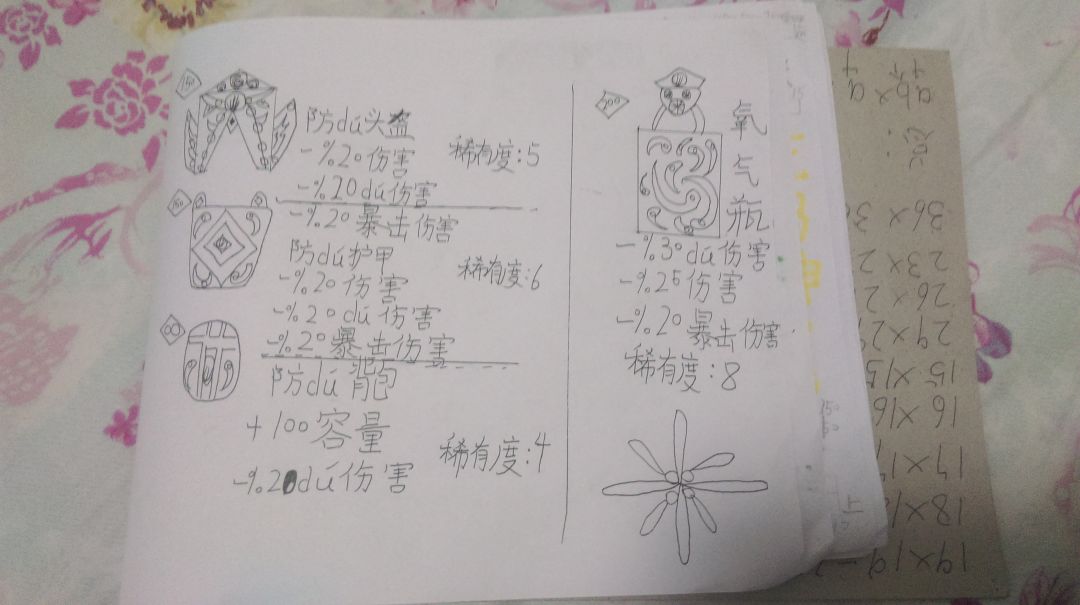 防dú头盔
-%20伤害
稀有度:5
-%20dú伤害
-%20暴击伤害
防dú护甲
-%20伤害
稀有度:6
-%20dú伤害
-%20暴击伤害
防dú背包
+100容量
稀有度:4
-%20dú伤害
氧
气
瓶
-%30dú伤害
-%25伤害
-%20暴击伤害
稀有度:8
36×3
23×2
26×2
29×2
15×15
16×16
17×1
18×1
19×19